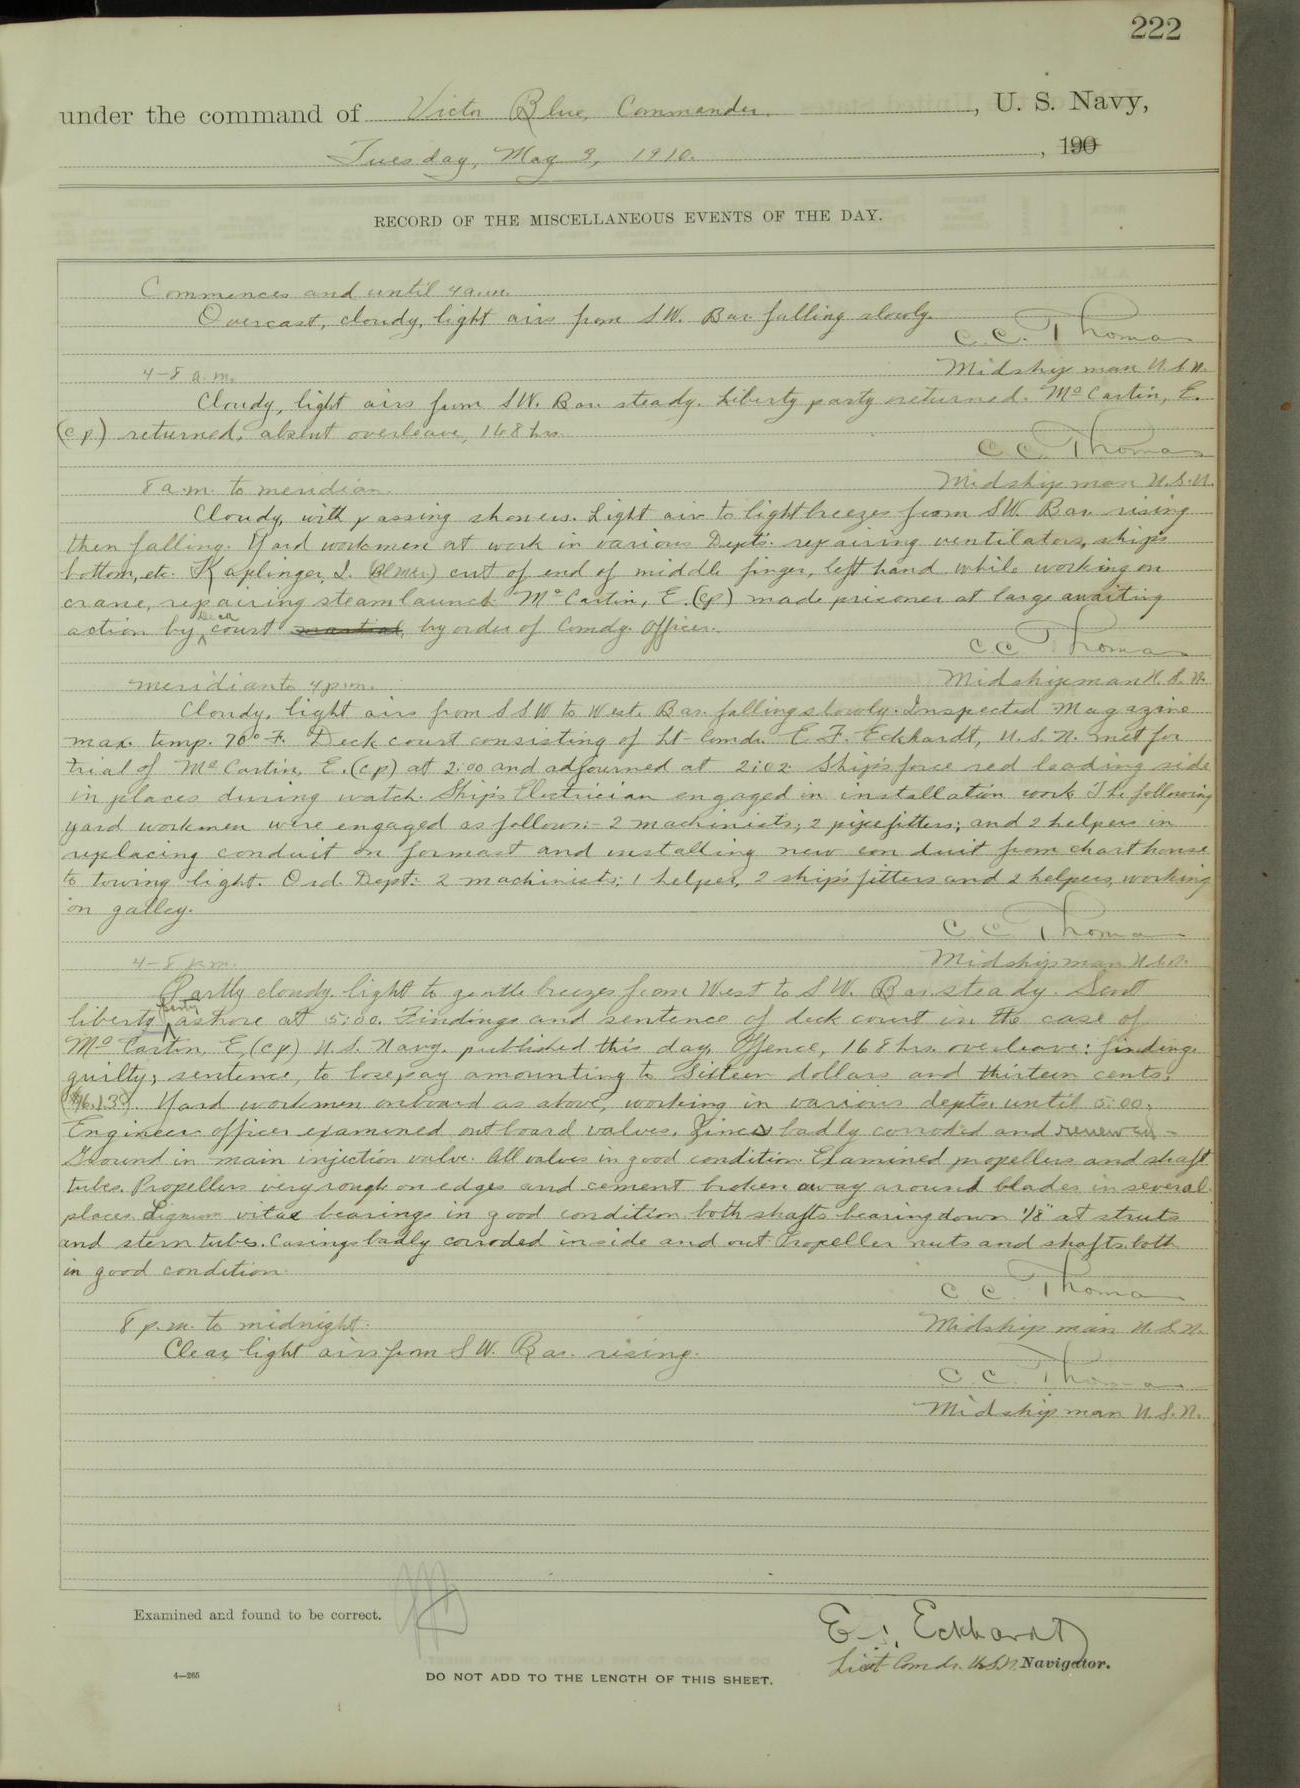 222
under the command of Victor Blue, Commander, U. S. Navy,
Tuesday, May 3, 1910. , 190
RECORD OF THE MISCELLANEOUS EVENTS OF THE DAY.
Commences and until 4 a.m.
Overcast, cloudy, light airs from SW. Bar. falling slowly.
C. C. Thomas
Midshipman U.S.N.
4-8 a.m.
Cloudy, light airs from SW. Bar. steady. Liberty party returned. McCartin, E.
(cp) returned, absent overleave, 168 hrs.
C. C. Thomas
Midshipman U.S.N.
8 a.m. to meridian.
Cloudy, with passing showers. Light airs to light breezes from SW. Bar. rising
then falling. Yard workmen at work in various Dept's. repairing ventilators, ship's
bottom, etc. Kaplinger, I. cut of end of middle finger, left hand while working on
crane, repairing steam launch. McCartin, E. (cp) made prisoner at large awaiting
action by deck court martial, by order of Comdg. Officer.
C. C. Thomas
Midshipman U.S.N.
meridian to 4 p.m.
Cloudy, light airs from SSW to West. Bar. falling slowly. Inspected Magazine
max. temp. 70° F. Deck court consisting of Lt-Comdr. E. F. Eckhardt, U.S.N. met for
trial of McCartin, E. (cp) at 2:00 and adjourned at 2:02. Ship's force red leading side
in places during watch. Ship's Electrician engaged in installation work. The following
yard workmen were engaged as follows:- 2 machinists; 2 pipefitters; and 2 helpers in
replacing conduit on formast and installing new conduit from chart house
to towing light. Ord. Dept: 2 machinists; 1 helper, 2 ship's fitters and 2 helpers, working
on galley.
C. C. Thomas
Midshipman U.S.N.
4-8 p.m.
Partly cloudy, light to gentle breezes from West to SW. Bar. steady. Sent
liberty party ashore at 5:00. Findings and sentence of deck court in the case of
McCartin, E. (cp) U.S. Navy, published this day. Offence, 168 hrs. overleave: finding
guilty; sentence, to lose pay amounting to sixteen dollars and thirteen cents.
($16.13). Yard workmen onboard as above, working in various depts. until 5:00.
Engineer officer examined outboard valves. Zincs badly corroded and renewed -
Ground in main injection valve. All valves in good condition. Examined propellers and shaft
tubes. Propellers very rough on edges and cement broken away around blades in several
places. Lignum vitae bearings in good condition, both shafts bearing down 1/8" at struts
and stern tubes. Casings badly corroded inside and out. Propeller nuts and shafts both
in good condition.
C. C. Thomas
Midshipman U.S.N.
8 p.m. to midnight.
Clear, light airs from SW. Bar. rising.
C. C. Thomas
Midshipman U.S.N.
Examined and found to be correct.
E. F. Eckhardt
Lieut Comdr. U.S.N. Navigator.
4—265
DO NOT ADD TO THE LENGTH OF THIS SHEET.